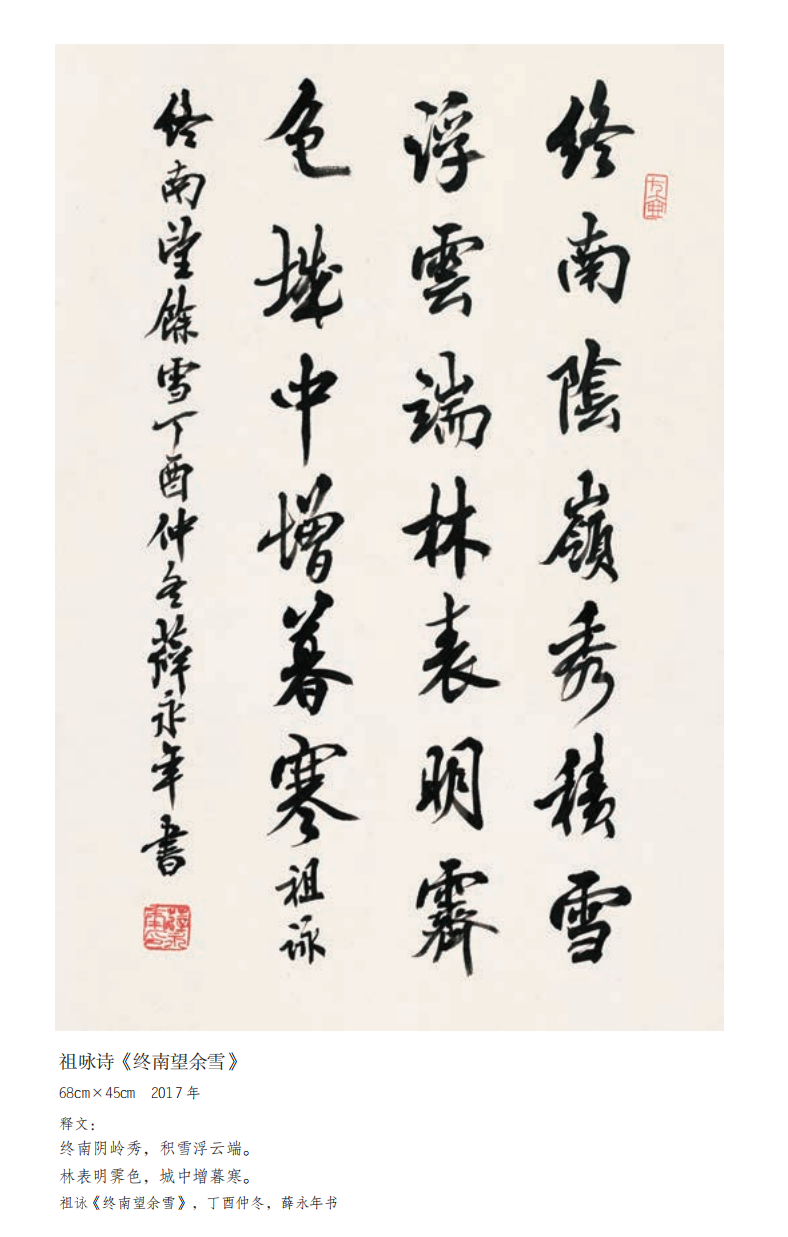 终南陰嶺秀積雪
浮雲端林表明霽
色城中增暮寒祖詠
终南望餘雪丁酉仲冬薛永年書
祖咏诗《终南望余雪》
68cm×45cm 2017年
释文：
终南阴岭秀，积雪浮云端。
林表明霁色，城中增暮寒。
祖咏《终南望余雪》，丁酉仲冬，薛永年书